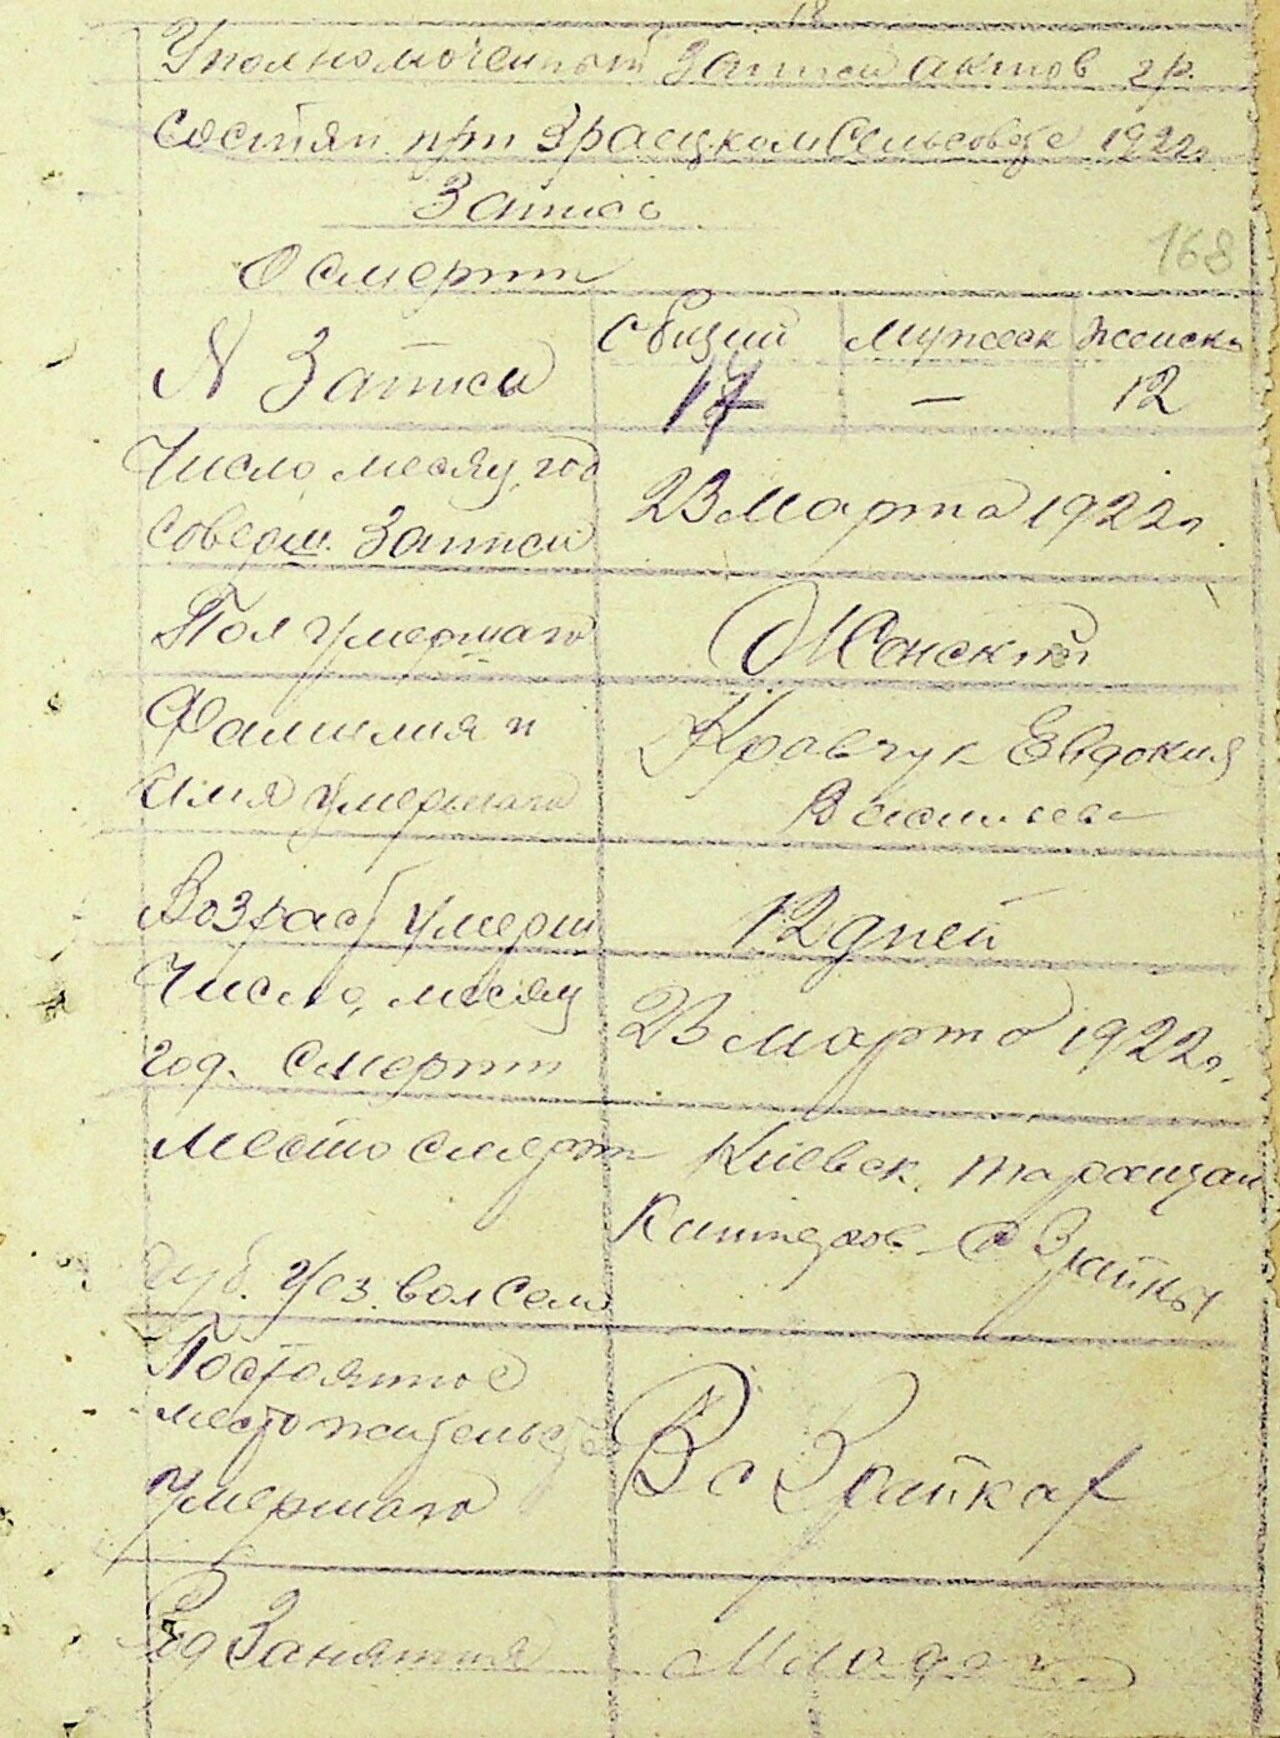 18
Уполномоченный Записи актов гр.
Состян при Зраецком Сельсовете 1922г
Запись
О смерти
168
N Записи
Общий Мужеск Женск.
17 — 12
Число, месяц, год
соверш. Записи
23 Марта 1922г.
Пол умершаго
Женский
Фамилия и
Имя умершаго
Кравчук Евдокия
Васильева
Возраст умерш
12 дней
Число, месяц
год. Смерти
23 марта 1922г.
Место смерти
Губ. Уез. Вол Село
Киевск. Таращан
с Зрайки
Постоянное
место жительств
Умершаго
В с Зрайках
Род Занятия